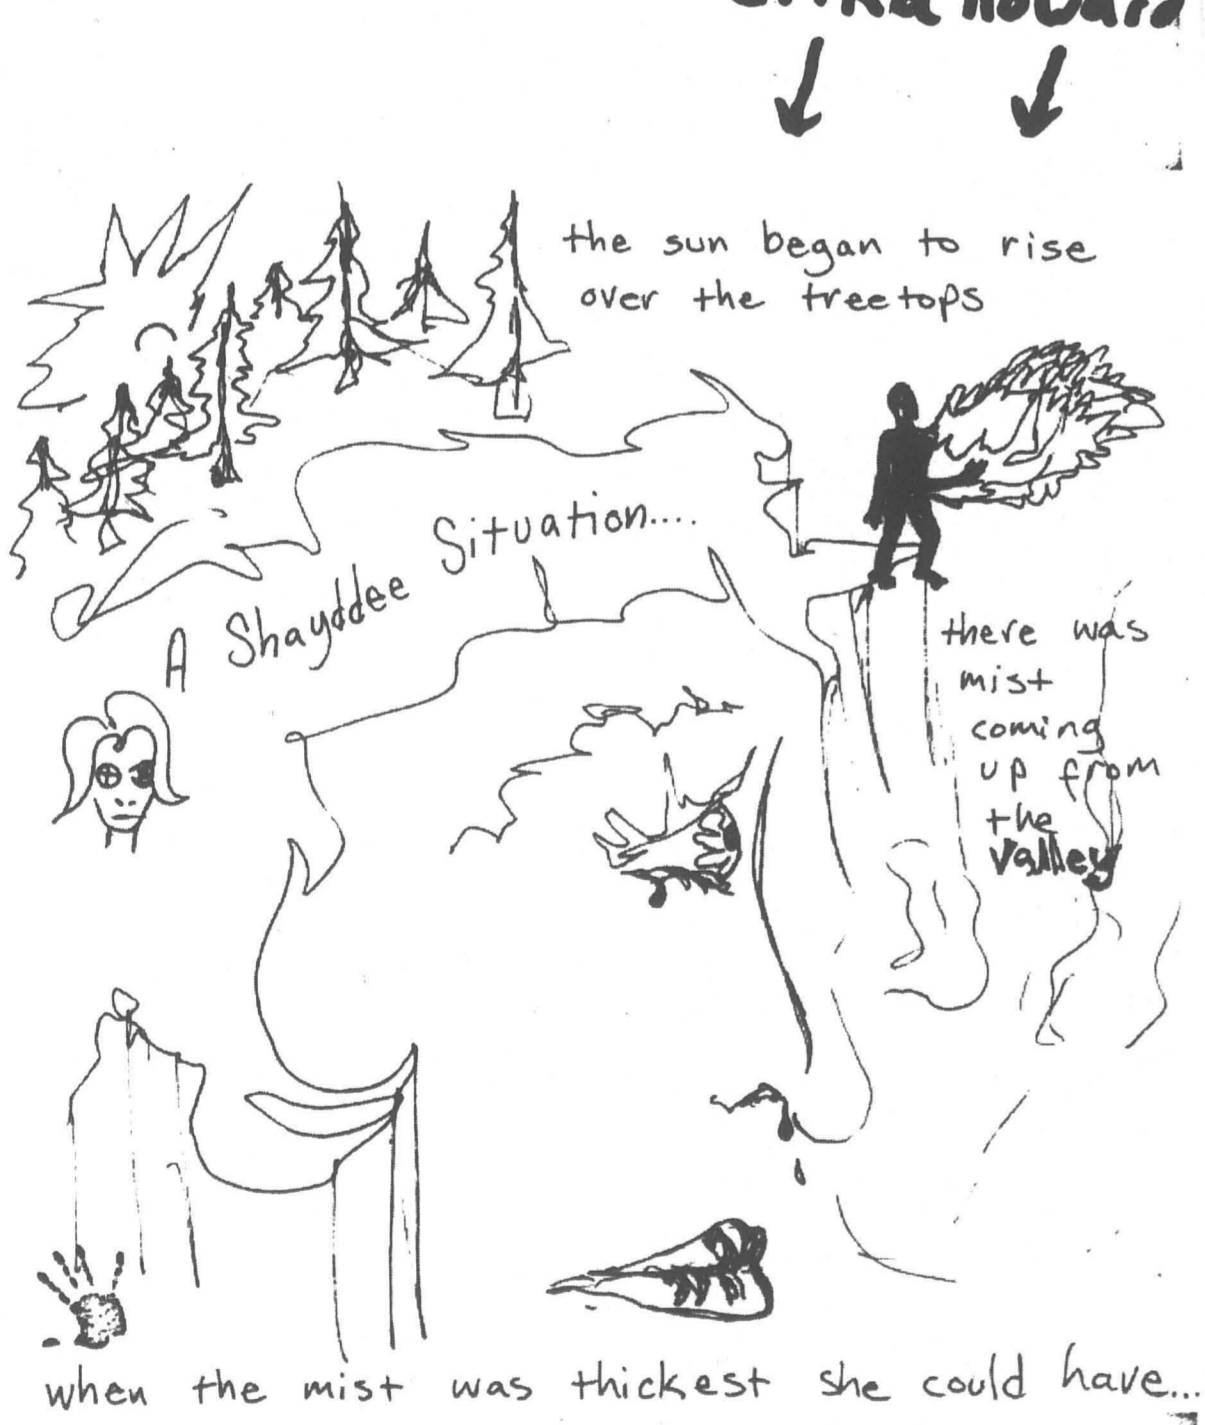 Erika Howard
the sun began to rise
over the treetops
A Shayddee Situation....
there was
mist
coming
up from
the
valley
when the mist was thickest she could have...